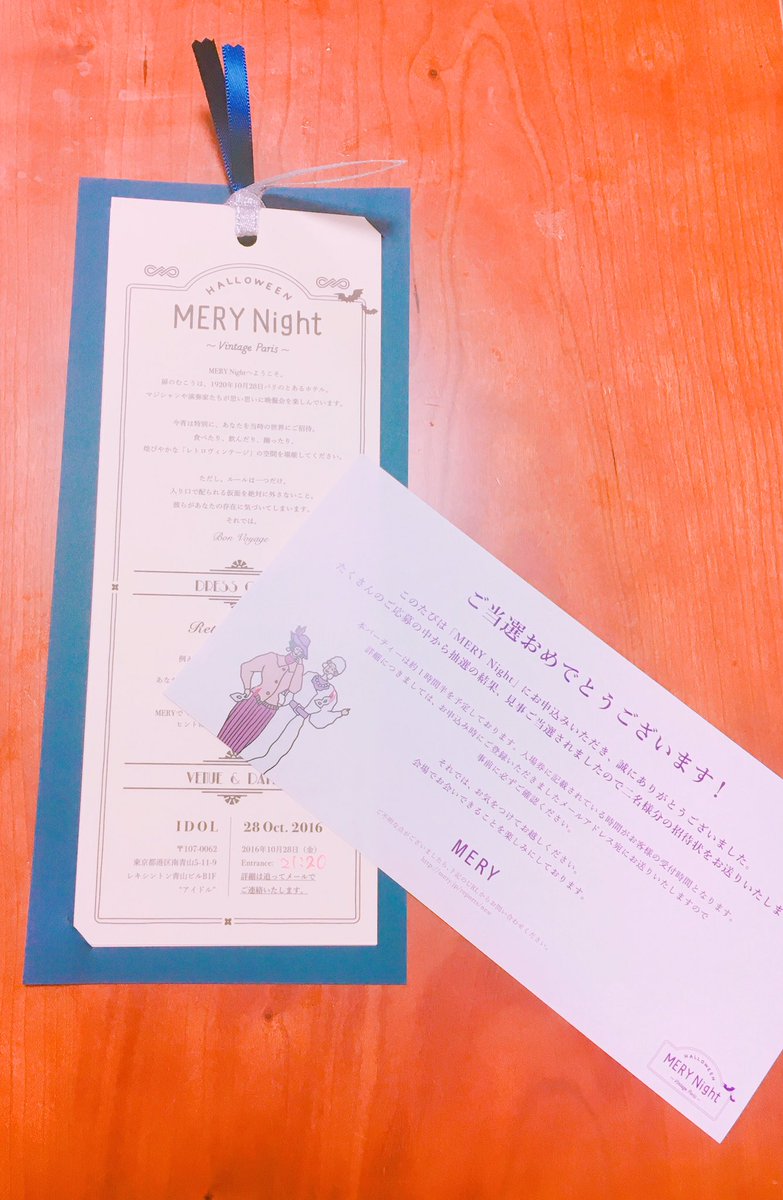 HALLOWEEN
MERY Night
～Vintage Paris～
MERY Nightへようこそ。
扉のむこうは、1920年10月28日パリのとあるホテル。
マジシャンや演奏家たちが思い思いに晩餐会を楽しんでいます。
今宵は特別に、あなたを当時の世界にご招待。
食べたり、飲んだり、踊ったり、
煌びやかな「レトロヴィンテージ」の空間を堪能してください。
ただし、ルールは一つだけ。
入り口で配られる仮面を絶対に外さないこと。
彼らがあなたの存在に気づいてしまいます。
それでは、
Bon Voyage
DRESS
Ret
あな
MERYで
ヒント
VENUE & DA
IDOL
〒107-0062
東京都港区南青山5-11-9
レキシントン青山ビルB1F
"アイドル"
28 Oct. 2016
2016年10月28日（金）
Entrance: 21:20
詳細は追ってメールで
ご連絡いたします。
ご当選おめでとうございます！
このたびは「MERY Night」にお申込みいただき、誠にありがとうございました。
たくさんのご応募の中から抽選の結果、見事ご当選されましたので二名様分の招待状をお送りいたしま
本パーティーは約1時間半を予定しております。入場券に記載されている時間がお客様の受付時間となります。
詳細につきましては、お申込み時にご登録いただきましたメールアドレス宛にお送りいたしますので
事前に必ずご確認ください。
それでは、お気をつけてお越しください。
会場でお会いできることを楽しみにしております。
MERY
ご不明な点がございましたら、下記のURLからお問い合わせください。
HALLOWEEN
MERY Night
～Vintage Paris～